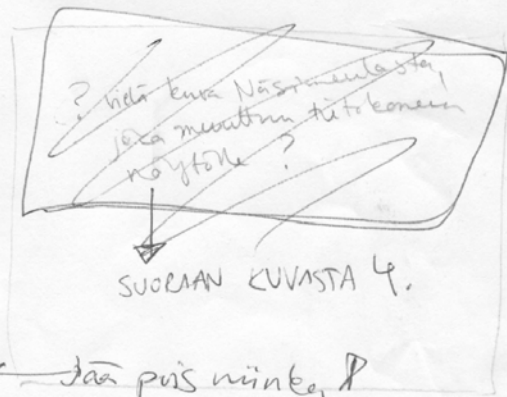 ? vielä kuva Näsinneulasta,
joka muuttuu tietokoneen
näytölle ?
SUORAAN KUVASTA 4.
Jää pois